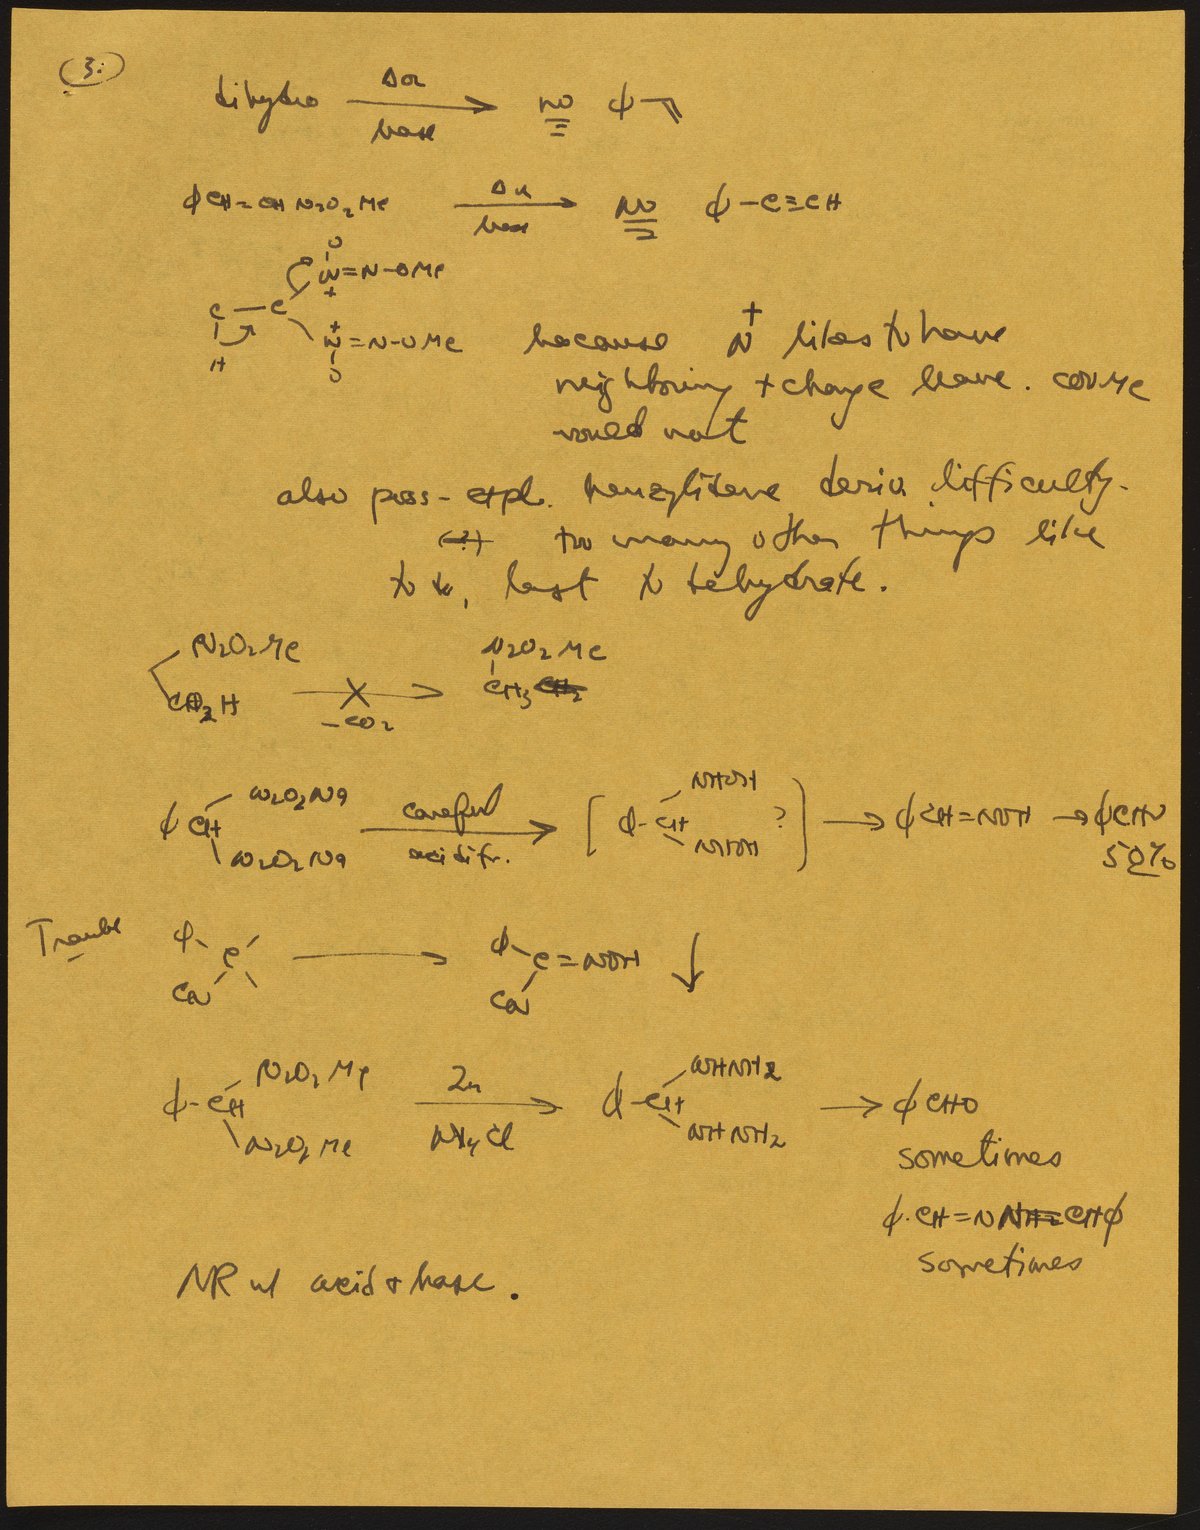 3:
dihydro Δ or base → no φ
φCH=CHN2O2Me Δ or base → no φ-C≡CH
O
N=N-OMe
+
C-C
H
+
N=N-OMe
O
because N+ likes to have
neighboring + charge leave. COOMe
would not
also poss. expl. benzylidene deriv difficulty.
(?) too many other things like
to do, last to dehydrate.
N2O2Me
CO2H → X -CO2
N2O2Me
CH3
φCH N2O2Na N2O2Na careful acidifc. → [φ-CH NHOH NHOH ?] → φCH=NOH → φCHO
50%
Traube φ C CN → φ C=NOH CN ↓
φ-CH N2O2Me N2O2Me Zn NH4Cl → φ-CH NHNH2 NHNH2 → φCHO
sometimes
φ·CH=NN=CHφ
sometimes
NR w/ acid + base.